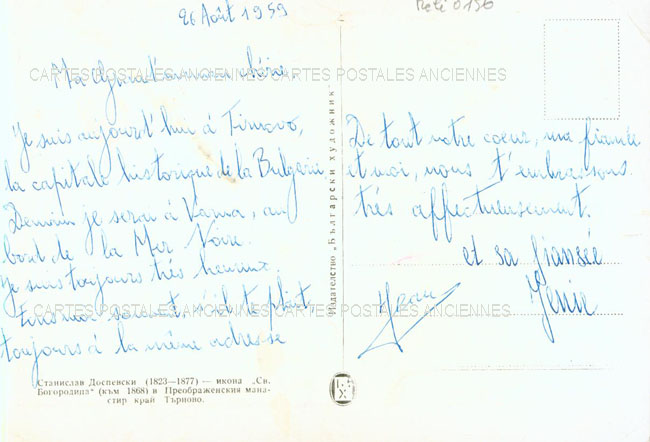 26 Août 1959
Ma chérie,
Je suis aujourd'hui à Tirnovo,
la capitale historique de la Bulgarie
Demain je serai à Varna, au
bord de la Mer Noire.
Je suis toujours très heureux.
souvent, s'il te plait,
toujours à la même adresse
De tout notre coeur, ma fiancée
et moi, nous t'embrassons
très affectueusement.
Jean
et sa fiansée
Jenie
CARTES POSTALES ANCIENNES CARTES POSTALES ANCIENNES
CARTES POSTALES ANCIENNES CARTES POSTALES ANCIENNES
Издателство „Български художник"
Станислав Доспевски (1823—1877) — икона „Св.
Богородица" (към 1868) в Преображенския мана-
стир край Търново.